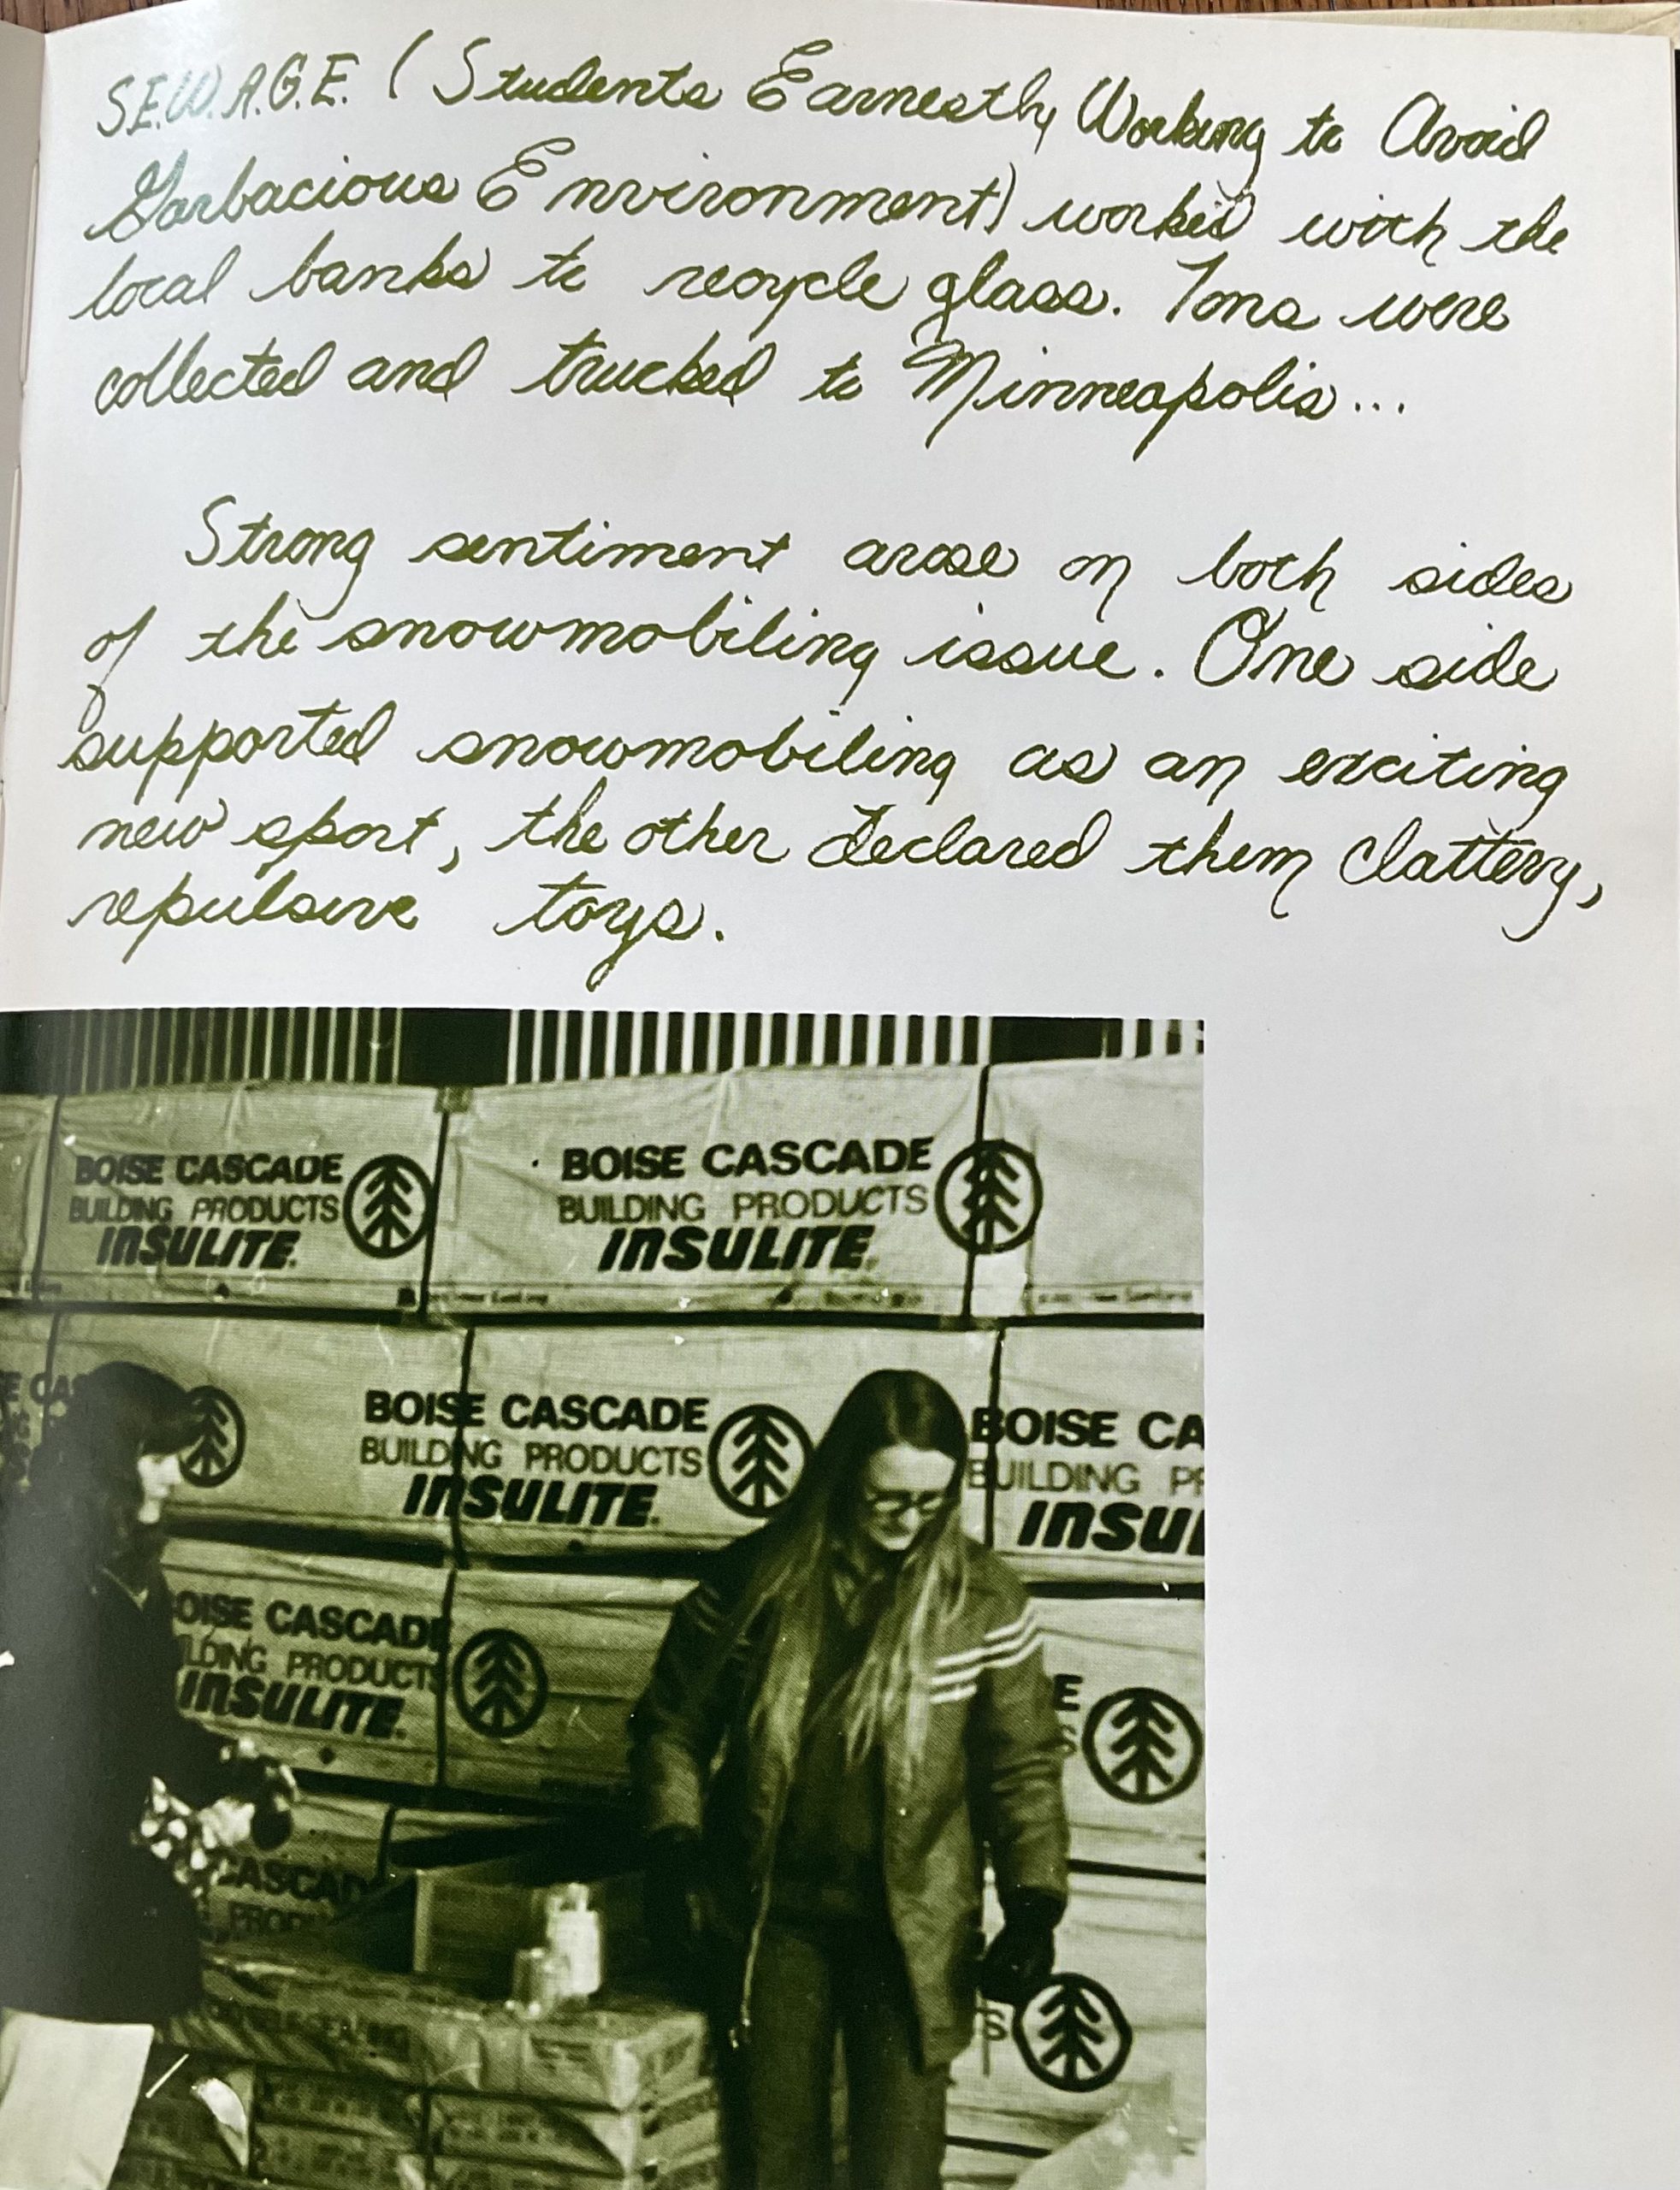 S.E.W.A.G.E. (Students Earnestly Working to Avoid
Garbacious Environment) worked with the
local banks to recycle glass. Tons were
collected and trucked to Minneapolis...
Strong sentiment arose on both sides
of the snowmobiling issue. One side
supported snowmobiling as an exciting
new sport, the other declared them clattery,
repulsive toys.
BOISE CASCADE
BUILDING PRODUCTS
INSULITE.
BOISE CASCADE
BUILDING PRODUCTS
INSULITE.
E CAS
BOISE CASCADE
BUILDING PRODUCTS
INSULITE.
BOISE CA
BUILDING PR
INSUL
OISE CASCADE
LDING PRODUCTS
INSULITE.
E
S
CASCAD
PRODU
S